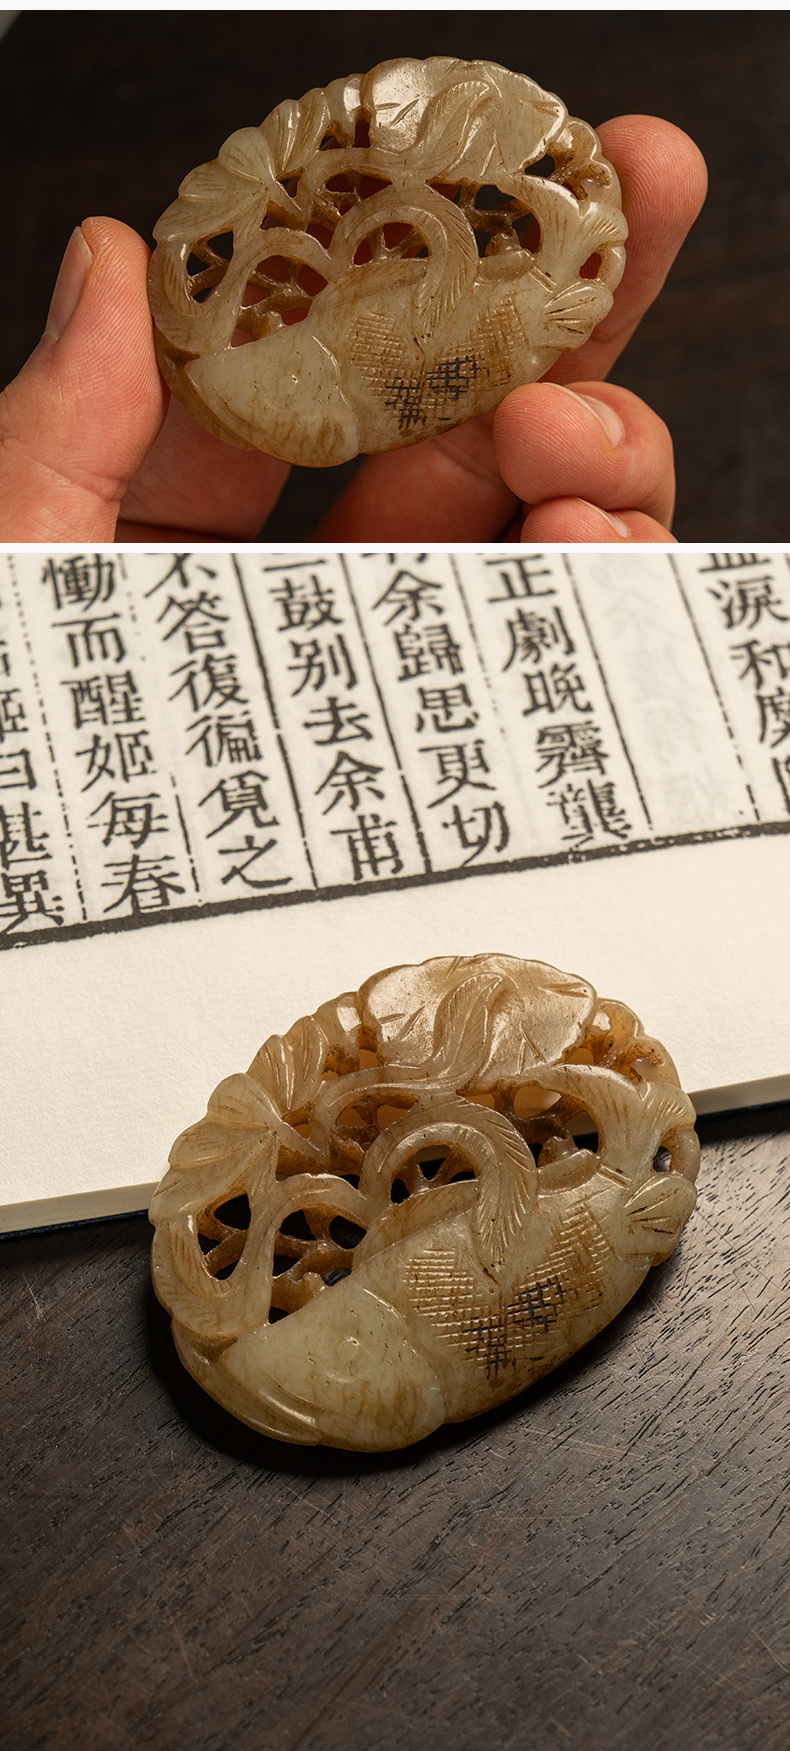 淚和
正劇晚霽龔
余歸思更切
鼓别去余甫
不答復徧覓之
慟而醒姬每春
姬曰甚異